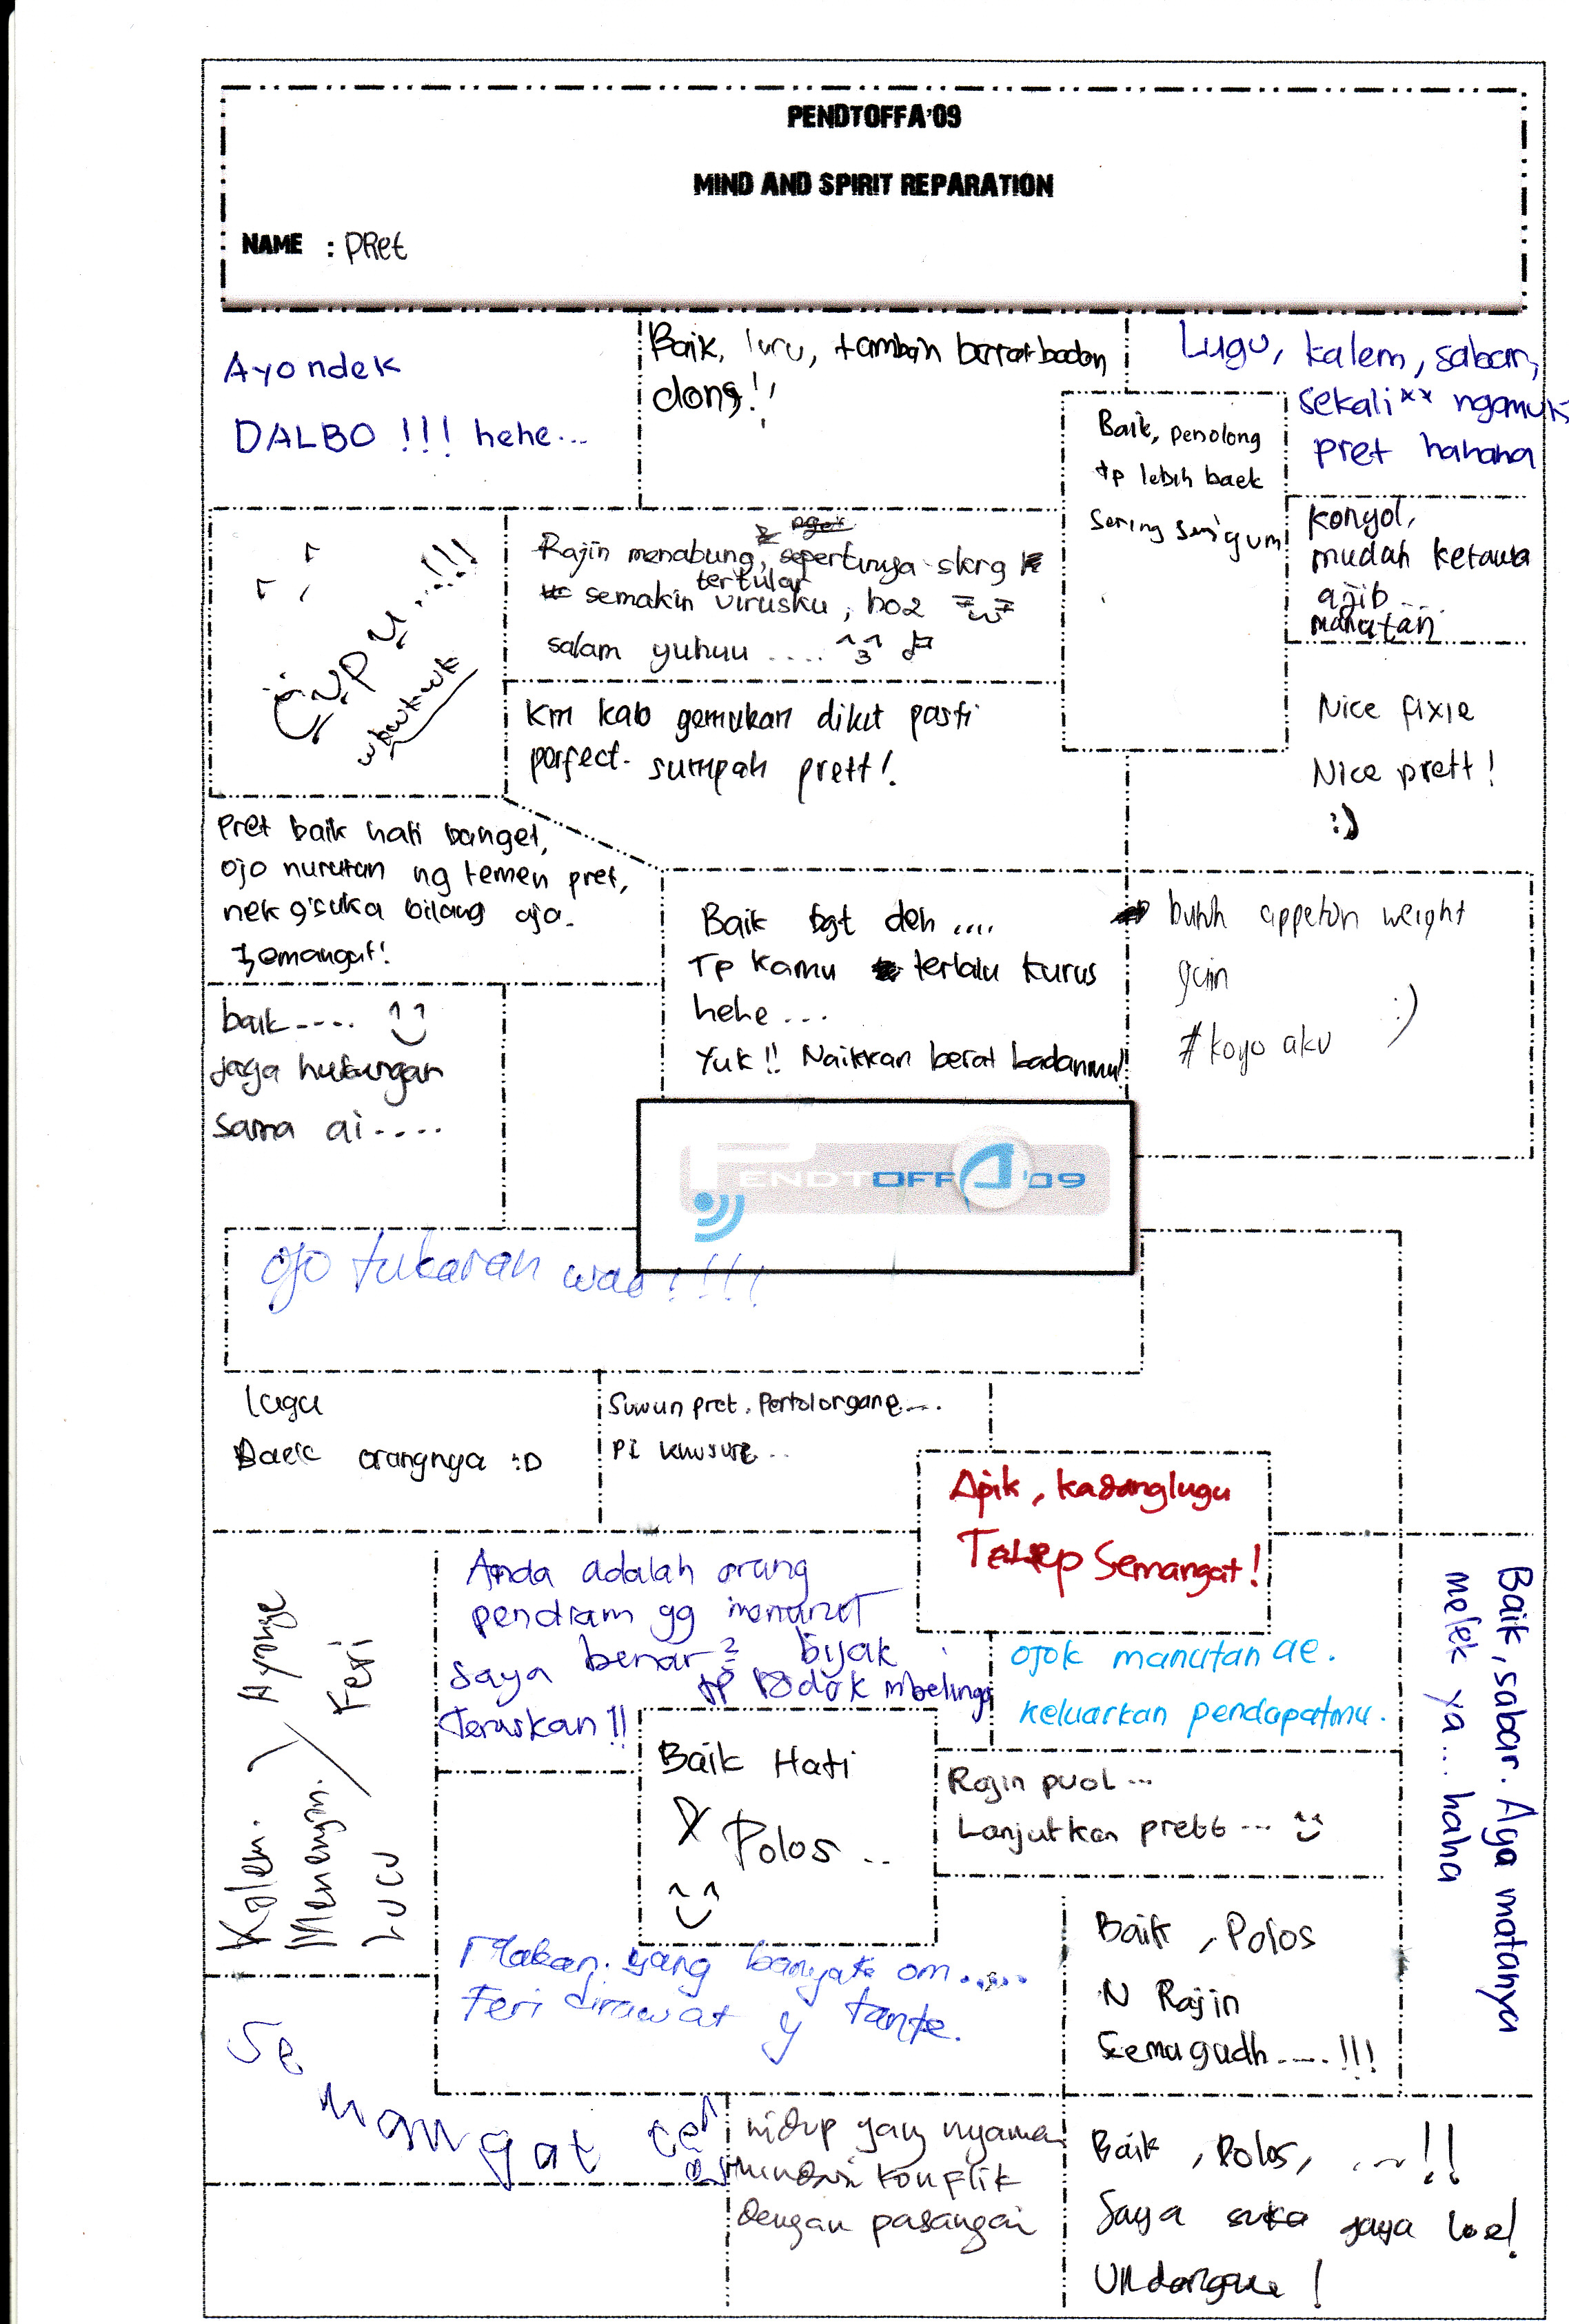 PENDTOFFA'09
MIND AND SPIRIT REPARATION
NAME : PRet
Ayo ndek
DALBO !!! hehe...
Baik, lucu, tambah berat badan
dong!!
Lugu, kalem, sabar,
sekali** ngamuk
pret hahaha
Baik, penolong
tp lebih baek
sering senyum
Konyol,
mudah ketawa
ajib....
manutan
CUPU...!!!
wkwkwk
Rajin menabung, sepertinya skrg
semakin tertular virusku, ho2
salam yuhuu ....
Km kalo gemukan dikit pasti
perfect. sumpah prett!
Nice fixie
Nice prett!
:)
Pret baik hati banget,
ojo nurutan ng temen pret,
nek g'suka bilang aja.
Semangat!
Baik bgt deh ....
Tp kamu terlalu kurus
hehe ...
Yuk!! Naikkan berat badanmu!
butuh appeton weight
gain
# koyo aku :)
baik....
jaga hubungan
sama ai....
PENDTOFFA'09
ojo tukaran wae!!!!
lugu
Baek orangnya :D
Suwun pret. Pertolongane....
Pi khusure...
Apik, kadang lugu
Tetep Semangat!
Kalem.
Menengan. / Feri
Lucu
Anda adalah orang
pendiam yg menurut
saya benar2 bijak
tp Rodok mbeling
Teruskan!!
ojok manutan ae.
keluarkan pendapatmu.
Baik, sabar. Aga matanya
melek ya... haha
Baik Hati
& Polos ..
Rajin puol...
Lanjutkan prett...
Makan yang banyak om......
Feri dirawat y tante.
Baik, Polos
N Rajin
Semagadh.....!!!
Semangat
hidup yang nyaman
konflik
dengan pasangan
Baik, Polos, ...!!
Saya suka gaya loe!
Undangane!